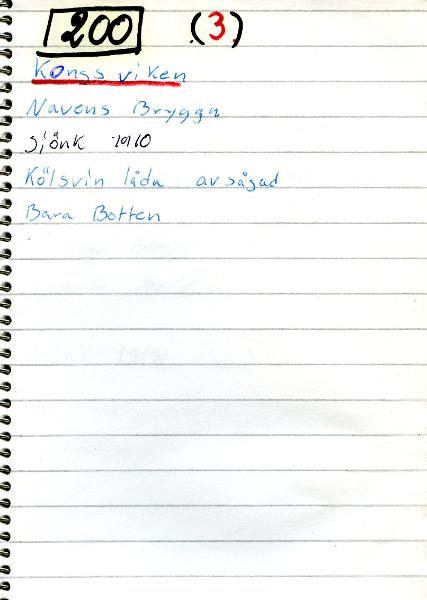 200 (3)
Kongsviken
Navens Brygga
Sjönk 1910
Kölsvin låda avsågad
Bara Botten